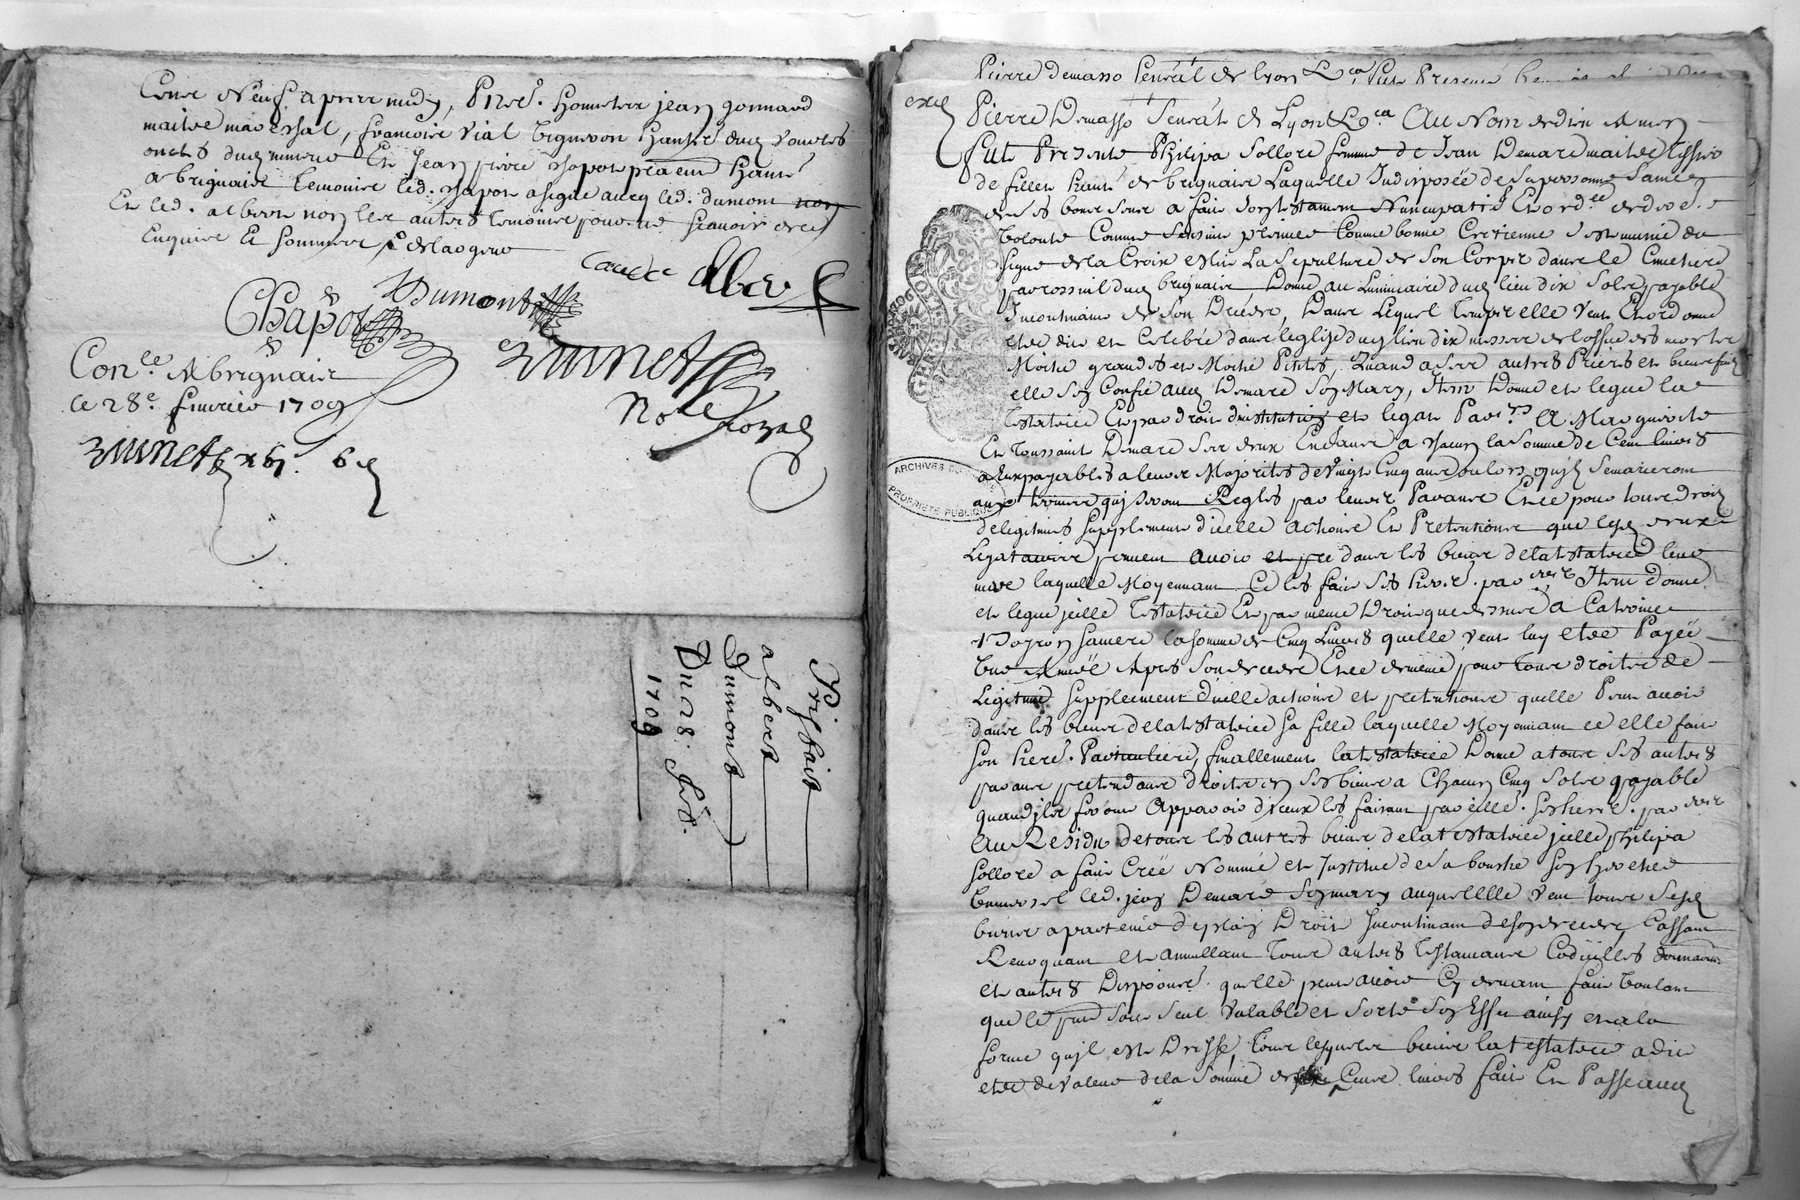 Cens Neuf apres midy, Pnts. honneste jean gonnard
maitre marechal, francoise vial vigneron habts dud vourles
Et jean pierre chapot habt
a brignais temoins led. chapot a signé avecq led. dumont
Et led. albert non les autres temoins pour ne scavoir de ce
Enquis Et sommes
Claude Alber
Dumont
Chapot
Brunet
Not. Royal
Con.le A brignais
le 28e febvrier 1709
Brunet
Prisfait
albert
Dumont
Du 28. feb.
1709
Pierre demasso senéal de lyon &ca fut Presente
Pierre Demasso Senéal de Lyon &ca Au Nom de dieu Amen
fut Presente Philipa Sollore femme de Jean Demare maitre tissier
de filles habt de brignais Laquelle Indisposée de sa personne Saine
de ses bons sens a fait son testament Nuncupatif Et ord.ce de dre
Volonte Comme s'ensuit premier Comme bonne Cretienne s'est munie du
signe de la Croix eslit La sepulture de son Corps dans le Cimetiere
parrossial dud brignais Donne au Luminaire dud lieu dix sols payable
Incontinant de son Deces, Dans Lequel temps elle veut Et ordonne
etre dit et Celebré dans leglise dud lieu dix messes de loffice des mortes
Moitié grandes et Moitié Petites, Quand a ses autres Prieres et bienfaits
elle s'en Confie aud Demare son Mary, Item Donne et legue la
testatrice Et par droit d'institution et legat Par.re A Marguerite
Et Toussaint Demare ses deux Enfans a chacun la somme de Cent livres
a eux payables a leurs Majorités de vingt Cinq ans ou lors qu'ils se marieront
aux termes qui seront Regles par leurs Parans Et ce pour tous droits
de legitimes supplement d'icelle actions Et Pretentions que lesd deux
Legataires peuvent avoir et pre dans les biens de la testatrice leur
mere laquelle Moyennant Ce les fait ses heres. par.ers Item donne
et legue jcelle testatrice Et par meme Droit que dessus A Catrine
sa mere la somme de Cinq Livres quelle veut luy etre Payée
Une Année Apres son deces Et ce de meme pour tous droits de
Legitime supplement d'icelle actions et pretentions quelle Peut avoir
dans les biens de la testatrice sa fille laquelle Moyennant ce elle fait
son here. Particuliere, finallement la testatrice Donne a tous ses autres
parans pretendans droits en ses biens a Chacun Cinq Sols payable
quand ils feront Apparoir d'iceux les faisant par elle. ses heres. par.ers
Au Residu de tous les autres biens de la testatrice jcelle philipa
sollore a fait Crée Nommé et Institué de sa bouche son heretier
Universel led. jean Demare son mary auquel elle veut tous sesd
biens apartenir de plain Droit Incontinant de son deces, Cassant
Revoquant Et annullant tous autres testamans Codicilles donnations
et autres Disposons. quelle peut avoir Cy devant fait voulant
que le pnt soit seul valable et sorte son Effet ainsy et a la
forme qu'jl est Dressé, tous lesquels biens la testatrice a dit
etre de valeur de la somme de Cens livres fait Et Passé aud
ARCHIVES DU
PROPRIETE PUBLIQUE